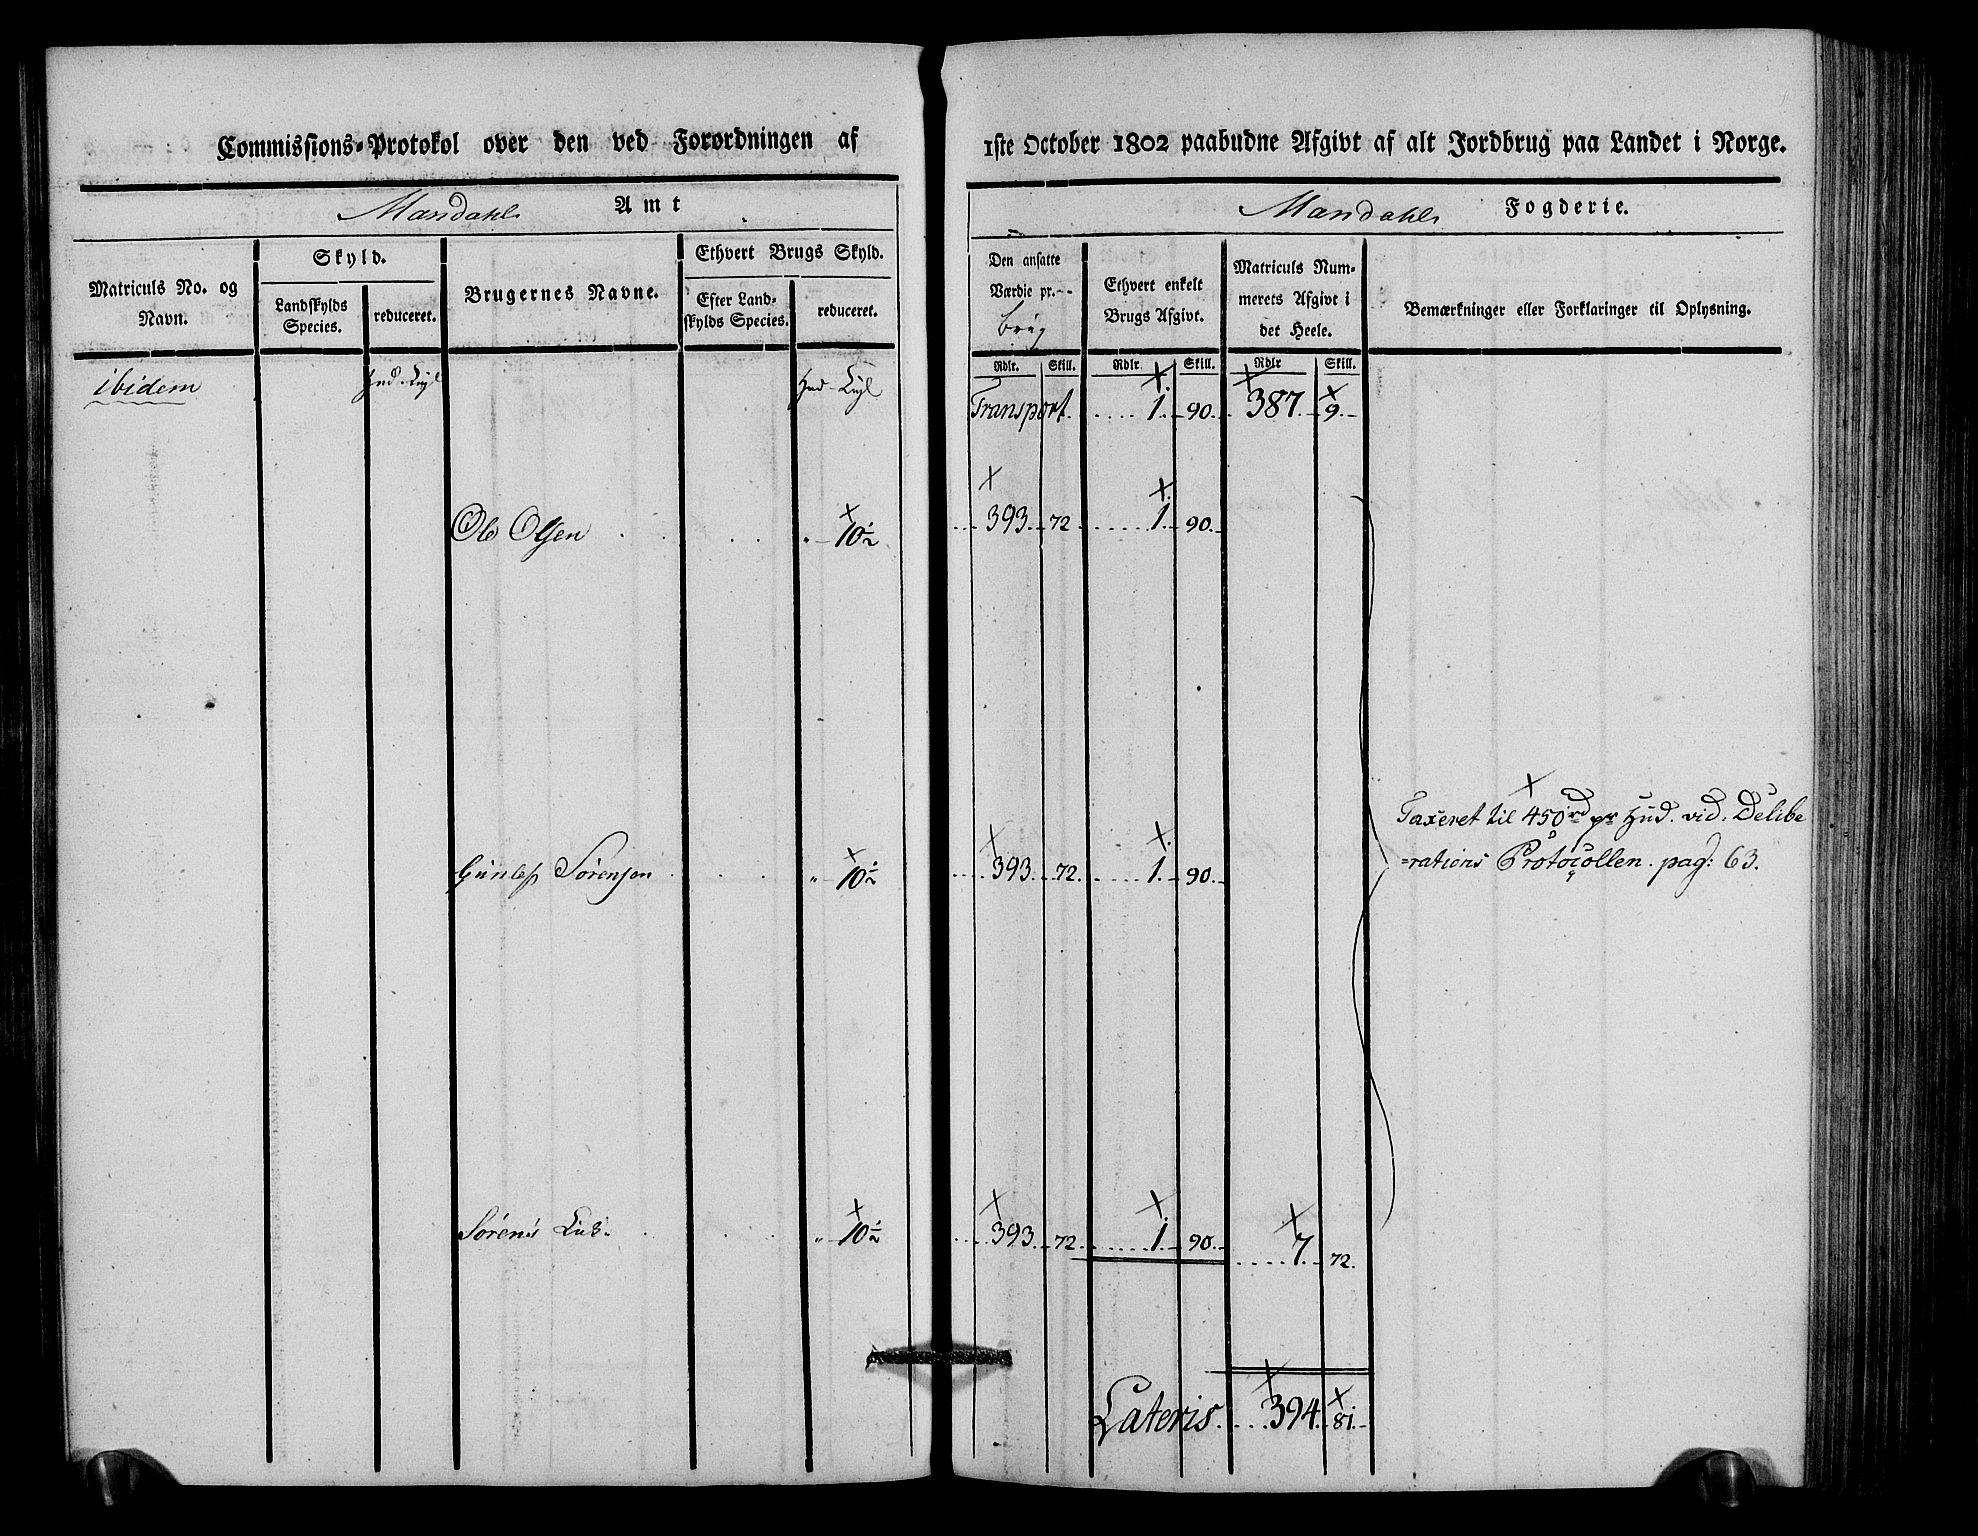 Commissions-Protokol over den ved Forordningen af 1ste October 1802 paabudne Afgivt af alt Jordbrug paa Landet i Norge.
Mandahls Amt
Mandahls Fogderie.
Matriculs No. og Navn.
Skyld.
Landskylds Species.
reduceret.
Brugernes Navne.
Ethvert Brugs Skyld.
Efter Landskylds Species.
reduceret.
Den ansatte Værdie pr. brug
Rdlr. Skill.
Ethvert enkelt Brugs Afgivt.
Rdlr Skill.
Matriculs Nummerets Afgivt i det Heele.
Rdlr Skill.
Bemærkninger eller Forklaringer til Oplysning.
ibidem
Transport 1 90 387 9
Ole Olsen 10½ 393 72 1 90
Taxeret til 450 rd pr Hud. vid. Delibe
=rations Protocollen. pag: 63.
Gunlef Sørensen 10½ 393 72 1 90
Søren 10½ 393 72 1 90 7 72
Lateris 394 81